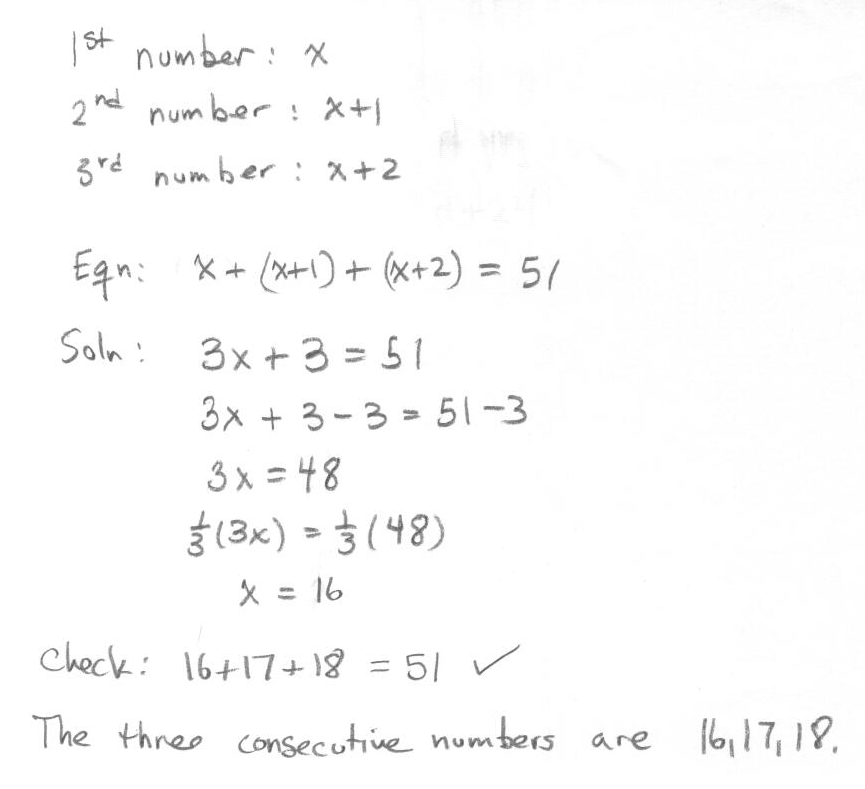 1st number: x
2nd number: x+1
3rd number: x+2
Eqn: x + (x+1) + (x+2) = 51
Soln: 3x + 3 = 51
3x + 3 - 3 = 51 - 3
3x = 48
1/3(3x) = 1/3(48)
x = 16
Check: 16+17+18 = 51 ✓
The three consecutive numbers are 16, 17, 18.